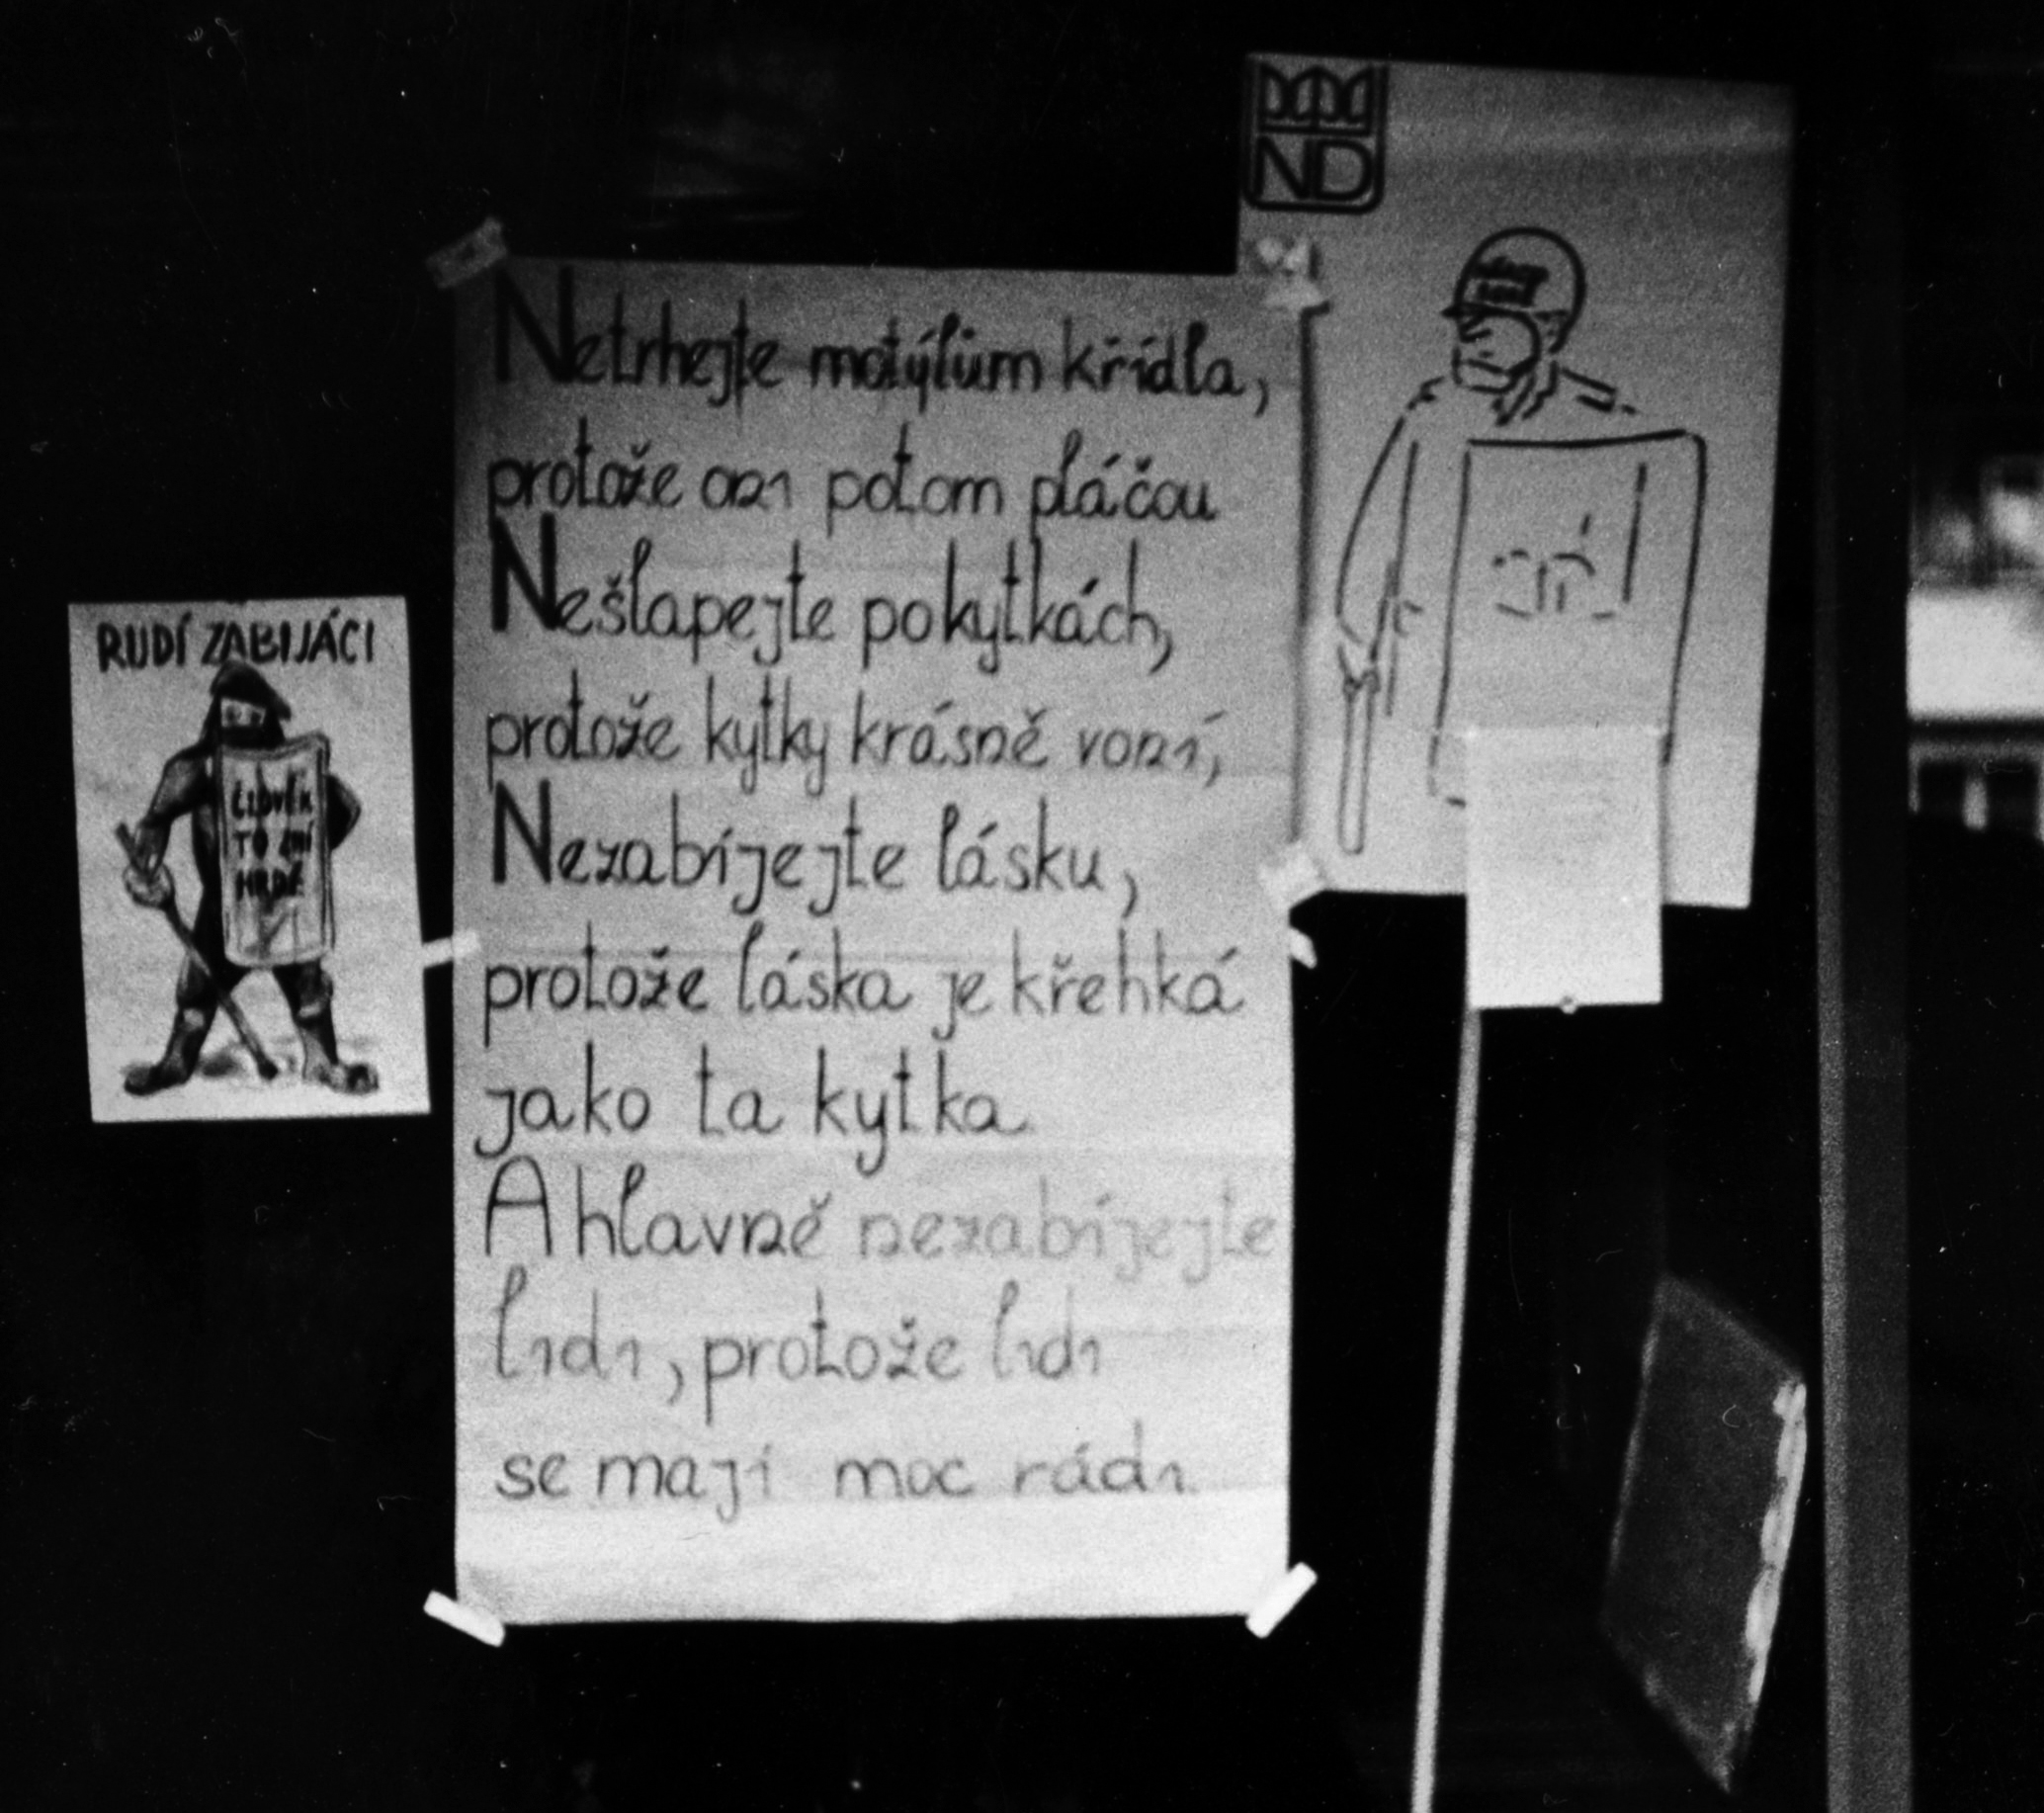 RUDÍ ZABIJÁCI
ČLOVĚK
TO ZNÍ
HRDĚ
Netrhejte motýlům křídla,
protože oni potom pláčou
Nešlapejte po kytkách,
protože kytky krásně voní,
Nezabíjejte lásku,
protože láska je křehká
jako ta kytka
A hlavně nezabíjejte
lidi, protože lidi
se mají moc rádi.
ND